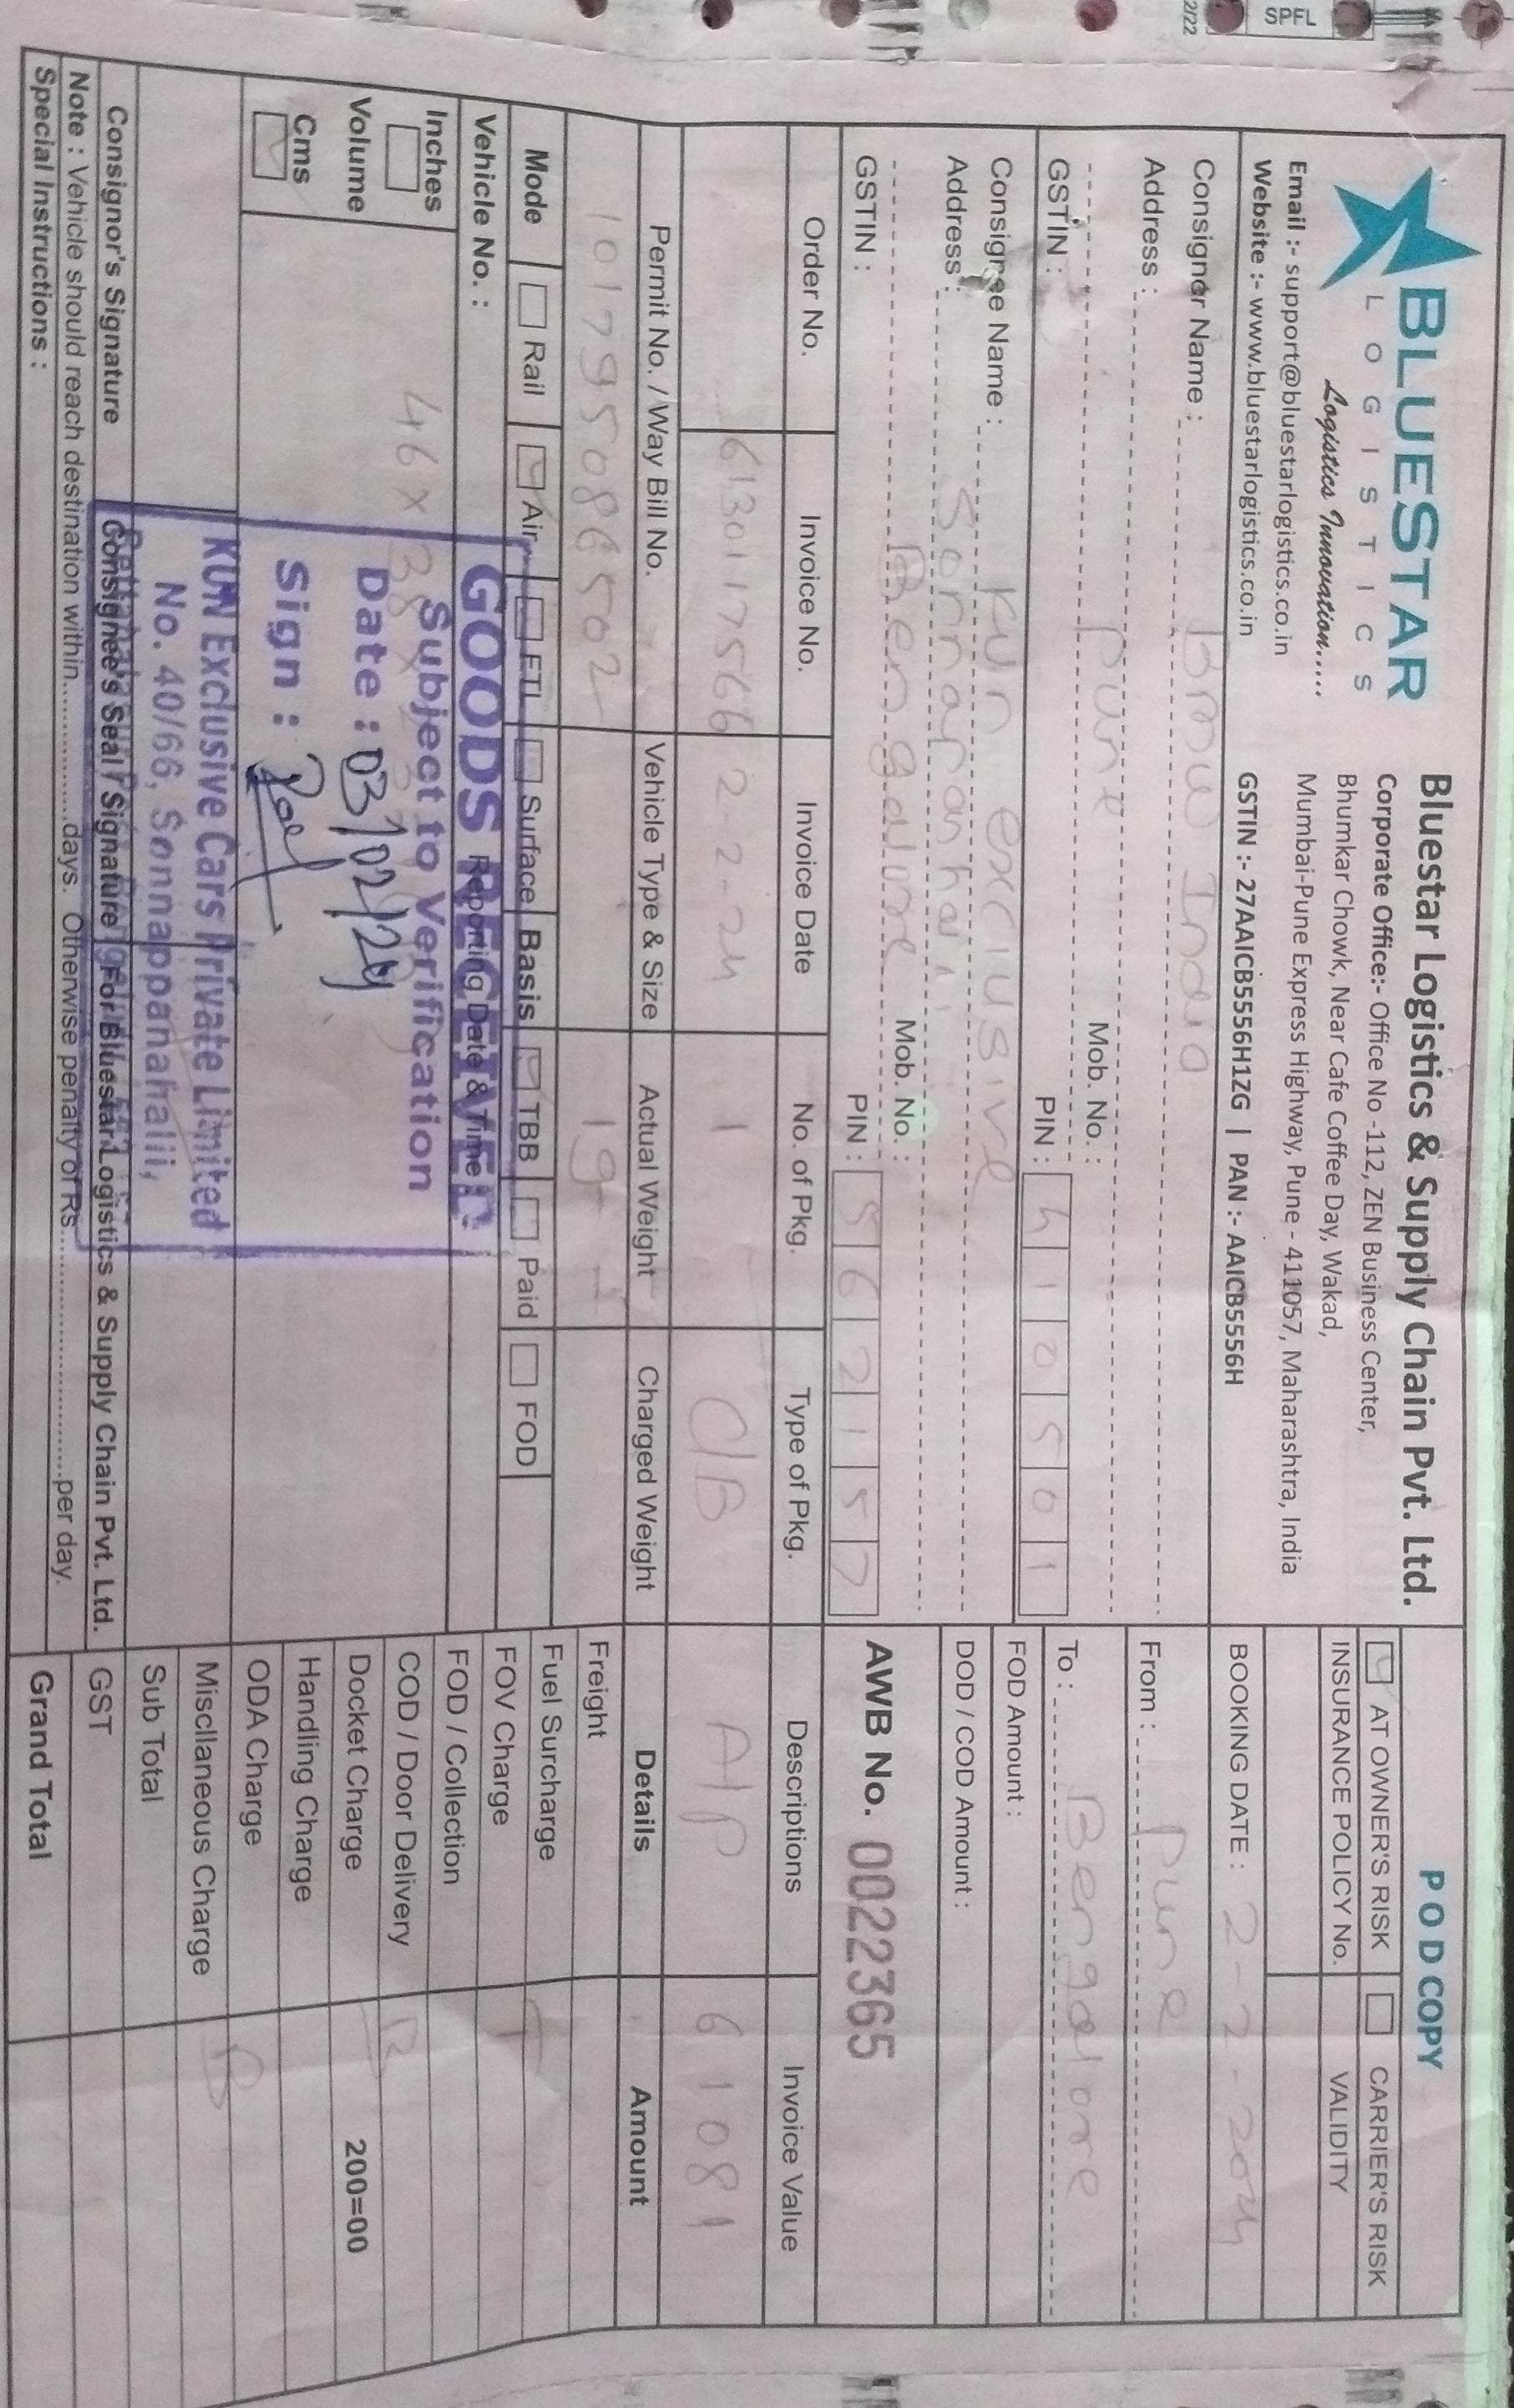 BLUESTAR
LOGISTICS
Logistics Innovation.....
Email :- support@bluestarlogistics.co.in
Website :- www.bluestarlogistics.co.in
Bluestar Logistics & Supply Chain Pvt. Ltd.
Corporate Office:- Office No -112, ZEN Business Center,
Bhumkar Chowk, Near Cafe Coffee Day, Wakad,
Mumbai-Pune Express Highway, Pune - 411057, Maharashtra, India
GSTIN :- 27AAICB5556H1ZG | PAN :- AAICB5556H
POD COPY
AT OWNER'S RISK CARRIER'S RISK
INSURANCE POLICY No. VALIDITY
BOOKING DATE : 2-2-2024
SPFL
2/22
Consignor Name : BMW India
Address :
Pune Mob. No. :
GSTIN : PIN : 410501
From : Pune
To : Bengalore
FOD Amount :
DOD / COD Amount :
AWB No. 0022365
Consignee Name : KUN exclusive
Address :
Bengalore Mob. No. :
GSTIN : PIN : 562157
Order No. Invoice No. Invoice Date No. of Pkg. Type of Pkg. Descriptions Invoice Value
6130117566 2-2-24 1 C/B A/P 61081
Permit No. / Way Bill No. Vehicle Type & Size Actual Weight Charged Weight Details Amount
101795086502 19
Mode Rail Air FTL Surface Basis TBB Paid FOD
Vehicle No. : Reporting Date & Time :
Inches
Volume
Cms
46 x 38 x
GOODS RECEIVED
Subject to Verification
Date : 03/02/24
Sign :
KUN Exclusive Cars Private Limited
No. 40/66, Sonnappanahalii,
Freight
Fuel Surcharge
FOV Charge
FOD / Collection
COD / Door Delivery
Docket Charge 200=00
Handling Charge
ODA Charge
Miscllaneous Charge
Sub Total
GST
Grand Total
T
B
B
Consignor's Signature Consignee's Seal / Signature For Bluestar Logistics & Supply Chain Pvt. Ltd.
Note : Vehicle should reach destination within..................days. Otherwise penalty of Rs................................per day.
Special Instructions :